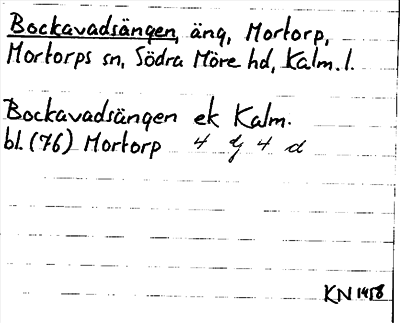 Bockavadsängen, äng, Mortorp,
Mortorps sn, Södra Möre hd, Kalm. l.
Bockavadsängen ek Kalm.
bl. (76) Mortorp 4 g 4 d
KN 1458